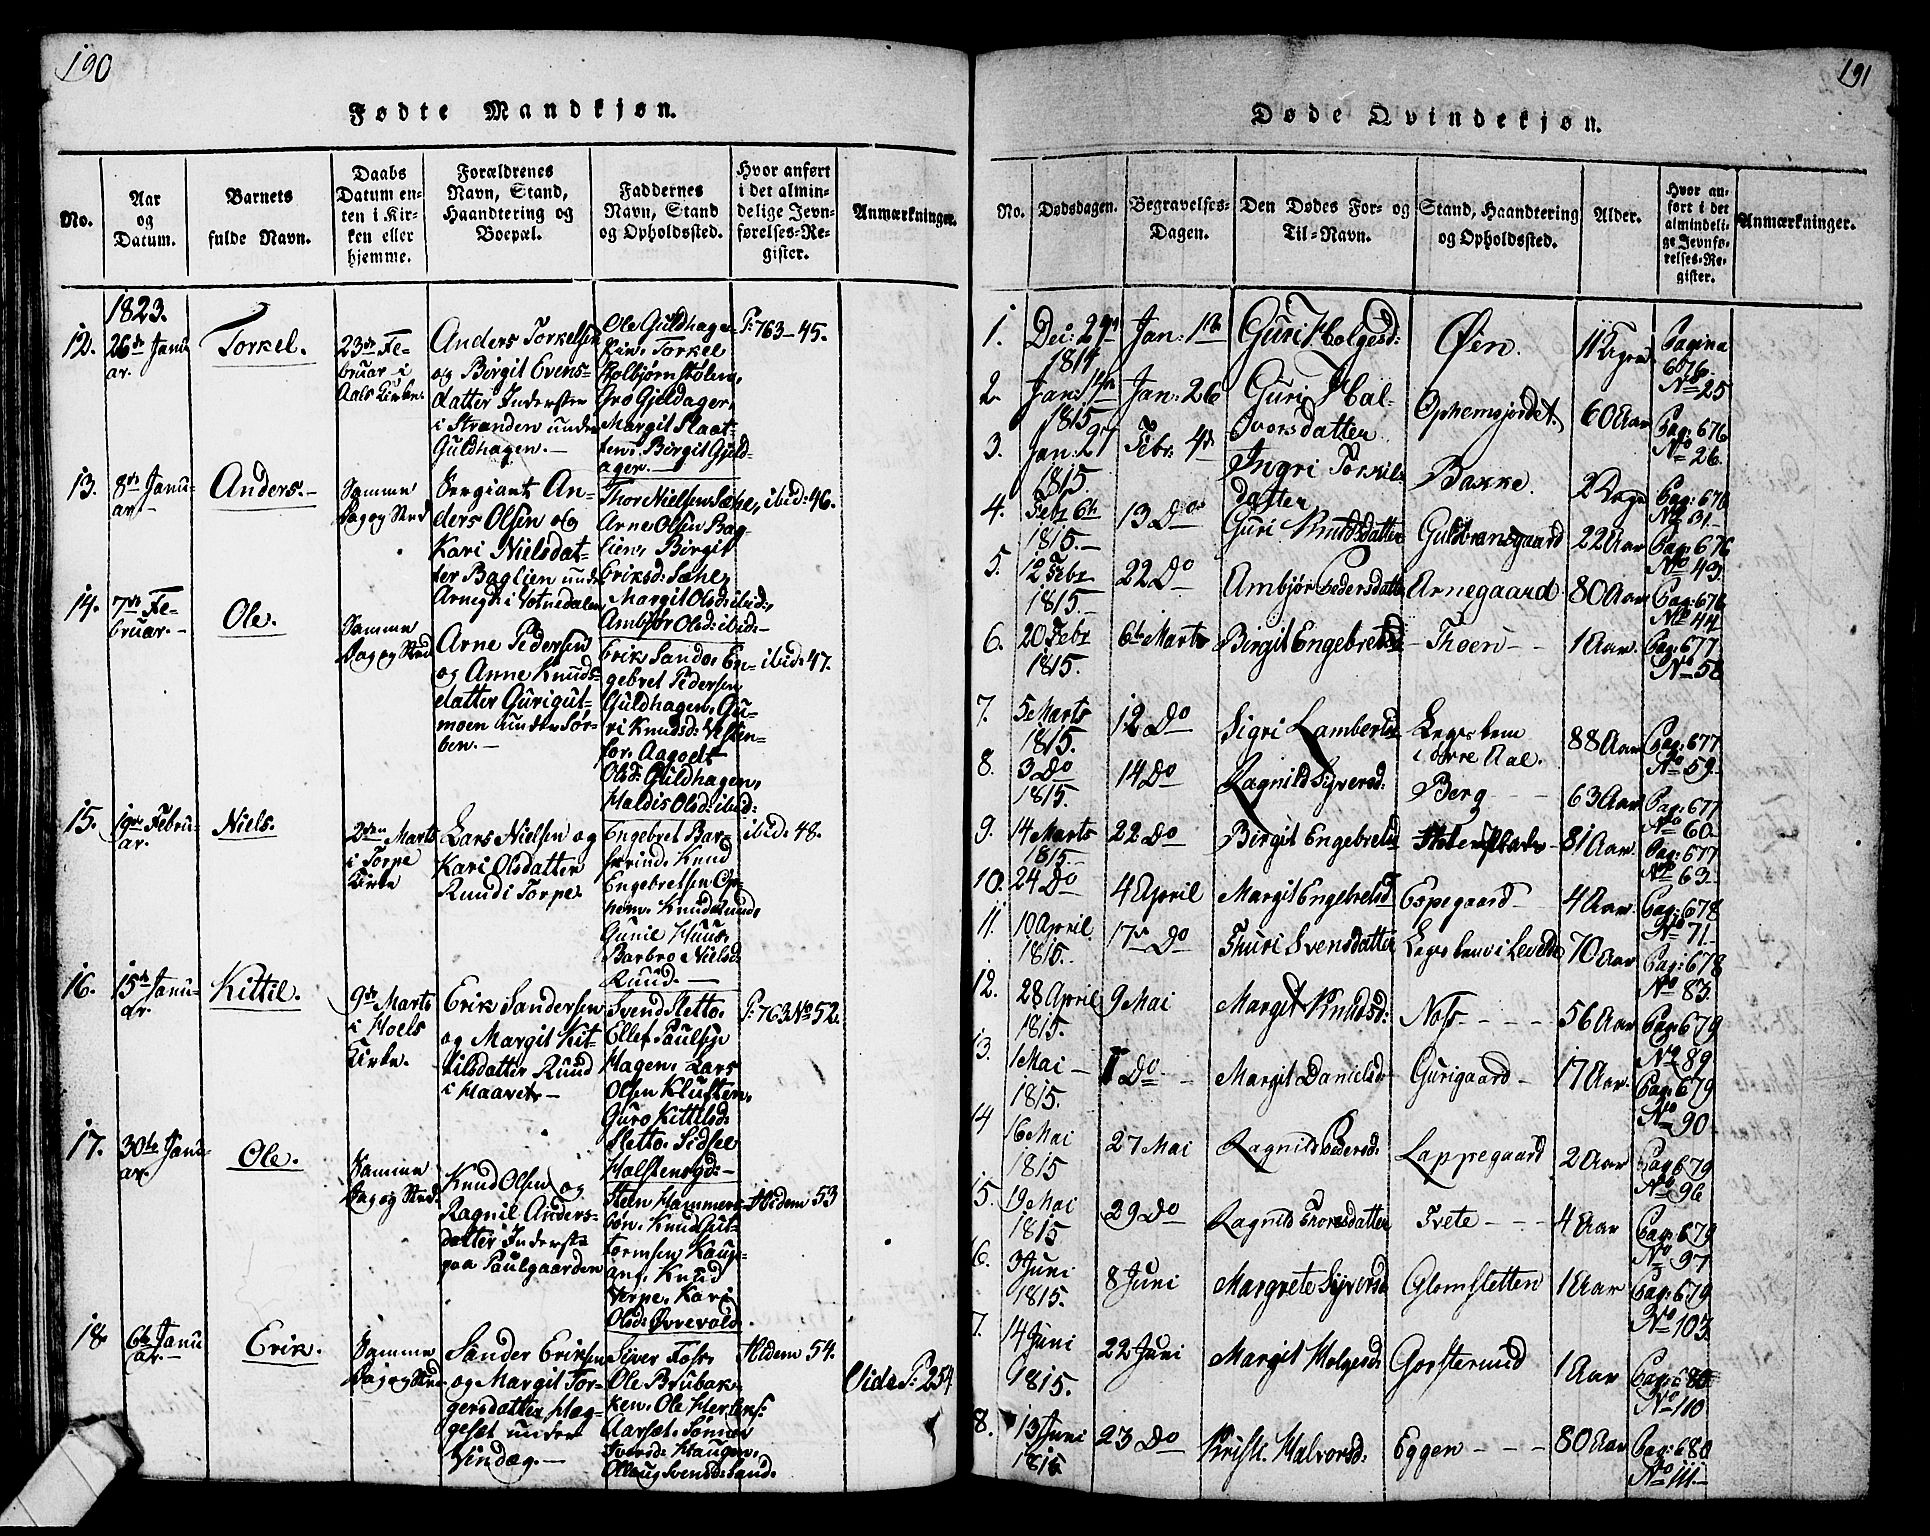 190
Fødte Mandkjøn.
No.
Aar
og
Datum.
Barnets
fulde Navn.
Daabs
Datum en-
ten i Kir-
ken eller
hjemme.
Forældrenes
Navn, Stand,
Haandtering og
Boepæl.
Faddernes
Navn, Stand
og Opholdssted.
Hvor anført
i det almin-
delige Jevn-
førelses-Re-
gister.
Anmærkninger.
1823.
12.
26de Janu-
ar.
Torkel.
23de Fe-
bruar i
Aals Kirke.
Anders Torkelsen
og Birgit Evens-
datter Inderster
i Stranden under
Guldhagen.
Ole Guldhagen
Torkel
Kolbjørnstølen,
Gro Gjeldager,
Margit Slaat-
ten, Birgit Gjeld-
ager.
P: 763-45.
13.
8de Janu-
ar
Anders.
Samme
Dag og Sted
Sergiant An-
ders Olsen og
Kari Nielsdat-
ter Baglien under
Arnegd: i Votnedalen
Thor Nielsen Sæhle,
Arne Olsen Bag-
lien, Birgit
Eriksd: Sæhle,
Margit Olsd: ibid:,
Ambjør Olsd: ibid:
ibid: 46.
14.
7de Fe-
bruar
Ole.
Samme
Dag og Sted
Arne Pedersen
og Anne Knuds-
datter Gurigut-
moen under Sør-
ben.
Erik Sando, En-
gebret Pedersen
Guldhagen, Gu-
ri Knudsd: Vesten-
for, Aagodt
Olsd: Guldhagen,
Haldis Olsd: ibid:
ibid: 47.
15.
19de Febru-
ar.
Niels.
2den Marts
i Torpe
Kirke
Lars Nielsen og
Kari Olsdatter
Ruud i Torpe
Engebret Bar-
skrind, Knud
Engebretsen Op-
hem, Knud
Gunil Huus,
Barbro Nielsd:
Ruud.
ibid: 48.
16.
15de Janu-
ar.
Kittil.
9de Marts
i Hoels
Kirke.
Erik Sandersen
og Margit Kit-
tilsdatter Ruud
i Haavet
Svend Sletto,
Ellef Paulsen
Hagen, Lars
Olsen Klusten,
Guro Kittilsd:
Sletto, Sidsel
Halstensgd:
P: 763 No 52.
17.
30te Janu-
ar.
Ole.
Samme
Dag og Sted.
Knud Olsen og
Ragnil Anders-
datter Inderste
paa Paulgaarden
Steen Hammers-
bøn, Knud Gut-
tormsen Kaup-
ang, Knud
Torpe, Kari
Olsd: Øvrevold.
Ibidem 53
18.
6te Janu-
ar.
Erik.
Samme
Dag og Sted
Sander Eriksen
og Margit Tor-
gersdatter Hag-
geset under
Vindæg.
Siver Foss,
Ole Brubak-
ken, Ole Hertens:
Aarsæt, Sønnev
Iversd: Haugen,
Ollaug Svensd: Sand.
Ibidem 54.
Vide P: 254
191
Døde Qvindekjøn.
No.
Dødsdagen.
Begravelses-
Dagen.
Den Dødes For- og
Til-Navn.
Stand, Haandtering
og Opholdssted.
Alder.
Hvor an-
ført i det
almindeli-
ge Jevnfø-
relses-Re-
gister.
Anmærkninger.
1. Dec: 29de 1814 Jan: 1te Guri Holgesd: Øen. 11 Pagina 676. No 25
2. Jan: 14de 1815 Jan: 26 Guri Hal-
vorsdatter Ophemsjordet. 60 Aar Pag: 676 No 26.
3. Jan: 27 1815. Febr: 4de Ingri Torkils-
datter Bakke. 2 Dage Pag: 676 No 31.
4. Febr 6te 1815. 13 Do Guri Knudsdatter Guldbransgaard 22 Aar Pag: 676 No 43.
5. 12 Febr 1815. 22 Do Ambjør Pedersdatter Arnegaard 80 Aar Pag: 676 No 44
6. 20 Febr 1815. 6te Marts Birgit Engebretsd Thoen 1 Aar. Pag: 677 No 58
7. 5 Marts 1815. 12 Do Sigri Lambertsd Legslem
i øvre Aal. 88 Aar Pag: 677 No 59.
8. 3 Do 1815. 14 Do Ragnild Syversd: Berg 63 Aar Pag: 677 No 60.
9. 14 Marts 1815. 22 Do Birgit Engebretsd 81 Aar. Pag: 677 No 63.
10. 24 Do 4 April Margit Engebretsd Espegaard 4 Aar. Pag: 678 No 71.
11. 10 April 1815. 17de Do Thuri Svensdatter Legslem i Leveld 70 Aar Pag: 678 No 83.
12. 28 April 1815. 9 Mai Margit Knudsd: Nos 56 Aar Pag: 679 No 89
13. 1 Mai 1815. Do Margit Danielsd: Gurigaard 17 Aar. Pag: 679 No 90.
14 16 Mai 1815 27 Mai Ragnild Pedersd: Lappegaard 2 Aar Pag: 679 No 96
15. 19 Mai 1815 29 Do Ragnild Thoresdatter Tvete 4 Aar Pag: 679 No 97
6. 3 Juni 1815. 8 Juni Margrete Syversd Glomstetten 1 Aar Pag: 679 No 103.
7. 14 Juni 1815. 22 Juni Margit Holgesd: Gorsterud 1 Aar Pag: 680 No 110
8. 13 Juni 1815 23 Do Kristi Halvorsd: Eggen 80 Aar Pag: 680 No 111.